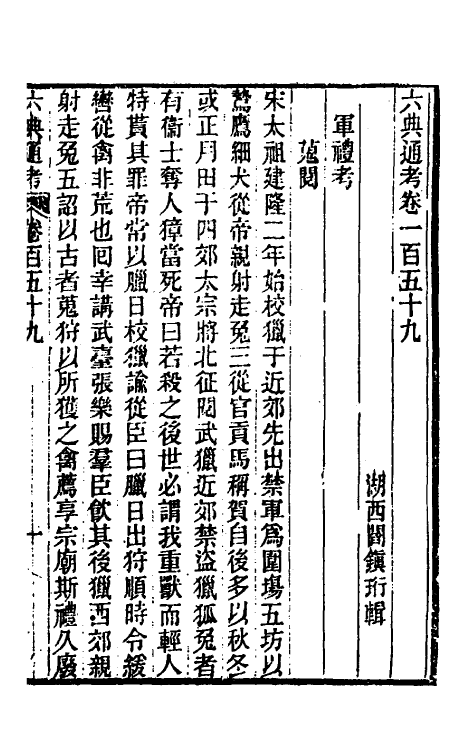 六典通考卷一百五十九
湖西閻鎮珩輯
軍禮考
蒐閱
宋太祖建隆二年始校獵于近郊先出禁軍爲圍塲五坊以
鷙鷹細犬從帝親射走兔三從官貢馬稱賀自後多以秋冬
或正月田于四郊太宗將北征閱武獵近郊禁盜獵狐兔者
有衞士奪人獐當死帝曰若殺之後世必謂我重獸而輕人
特貰其罪帝常以臘日校獵諭從臣曰臘日出狩順時令緩
轡從禽非荒也囘幸講武臺張樂賜羣臣飮其後獵西郊親
射走兔五詔以古者蒐狩以所獲之禽薦享宗廟斯禮久廢
六典通考 卷百五十九 十